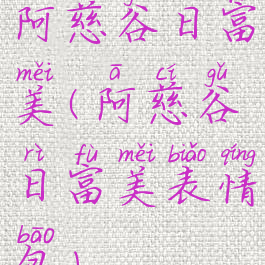 阿慈谷日富
měi ā cí gǔ
美(阿慈谷
rì fù měi biǎo qíng
日富美表情
bāo
包)